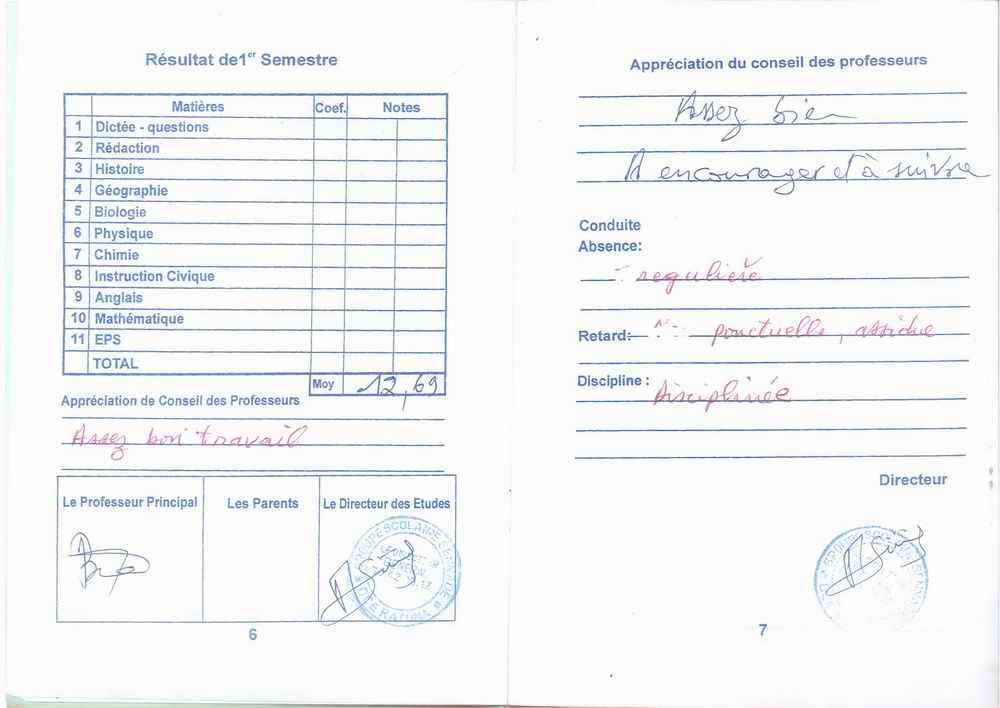 Résultat de1er Semestre
Matières Coef. Notes
1 Dictée - questions
2 Rédaction
3 Histoire
4 Géographie
5 Biologie
6 Physique
7 Chimie
8 Instruction Civique
9 Anglais
10 Mathématique
11 EPS
TOTAL
Moy 12,69
Appréciation de Conseil des Professeurs
Assez bon travail
Le Professeur Principal Les Parents Le Directeur des Etudes
6
Appréciation du conseil des professeurs
Assez bien
A encourager et à suivre
Conduite
Absence:
régulière
Retard: ponctuelle, assidue
Discipline : Disciplinée
Directeur
7